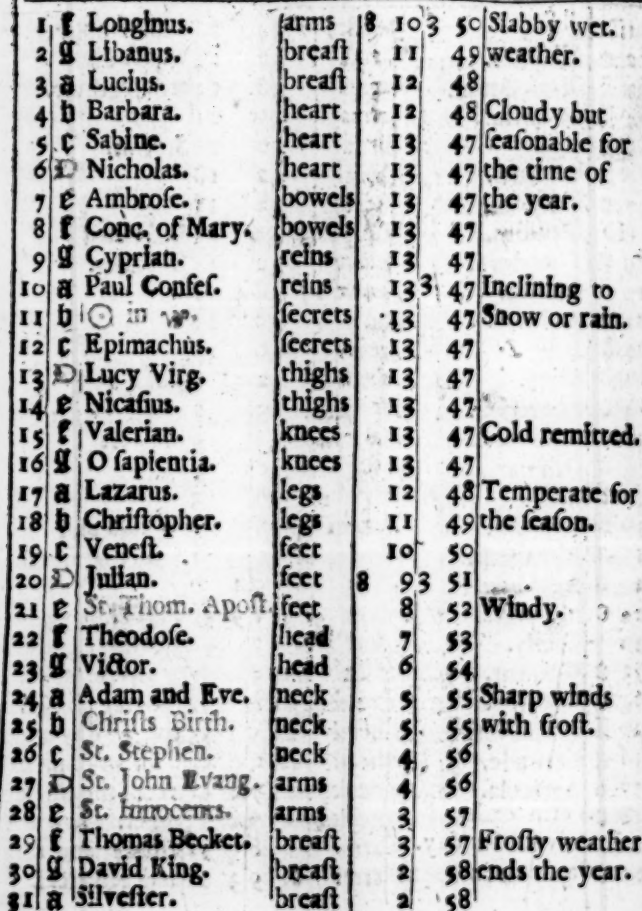 1 f Longinus. arms 8 10 3 50 Slabby wet.
2 g Libanus. breaſt 11 49 weather.
3 a Lucius. breaſt 12 48
4 b Barbara. heart 12 48 Cloudy but
5 c Sabine. heart 13 47 ſeaſonable for
6 D Nicholas. heart 13 47 the time of
7 e Ambroſe. bowels 13 47 the year.
8 f Conc. of Mary. bowels 13 47
9 g Cyprian. reins 13 47
10 a Paul Confeſ. reins 13 3 47 Inclining to
11 b ☉ in ♑. ſecrets 13 47 Snow or rain.
12 c Epimachus. ſecrets 13 47
13 D Lucy Virg. thighs 13 47
14 e Nicaſius. thighs 13 47
15 f Valerian. knees 13 47 Cold remitted.
16 g O ſapientia. knees 13 47
17 a Lazarus. legs 12 48 Temperate for
18 b Chriſtopher. legs 11 49 the ſeaſon.
19 c Veneſt. feet 10 50
20 D Julian. feet 8 9 3 51
21 e St. Thom. Apoſt. feet 8 52 Windy.
22 f Theodoſe. head 7 53
23 g Victor. head 6 54
24 a Adam and Eve. neck 5 55 Sharp winds
25 b Chriſts Birth. neck 5 55 with froſt.
26 c St. Stephen. neck 4 56
27 D St. John Evang. arms 4 56
28 e St. Innocents. arms 3 57
29 f Thomas Becket. breaſt 3 57 Froſty weather
30 g David King. breaſt 2 58 ends the year.
31 a Silveſter. breaſt 2 58